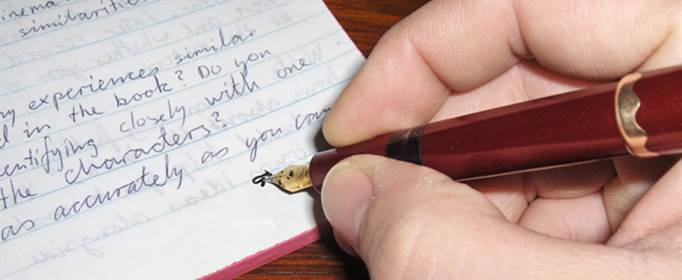 inema
similaritie
ny experiences similar
d in the book? Do you
entifying closely with one
the characters?
as accurately as you can